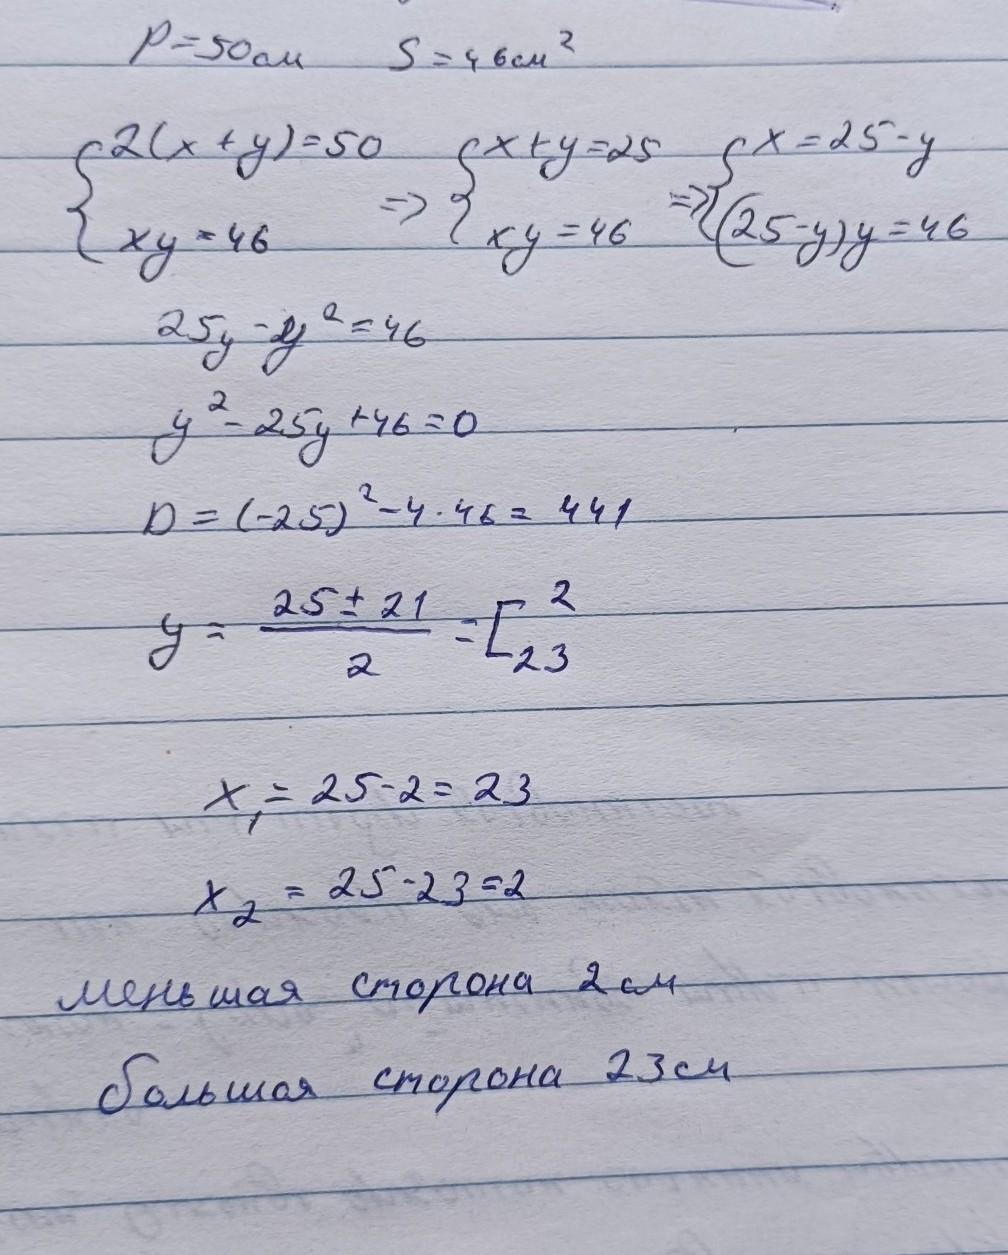 P=50см S=46см²
{2(x+y)=50 => {x+y=25 => {x=25-y
{xy=46 {xy=46 {(25-y)y=46
25y-y²=46
y²-25y+46=0
D=(-25)²-4·46=441
y=(25±21)/2=[2 23
x₁=25-2=23
x₂=25-23=2
меньшая сторона 2см
большая сторона 23см